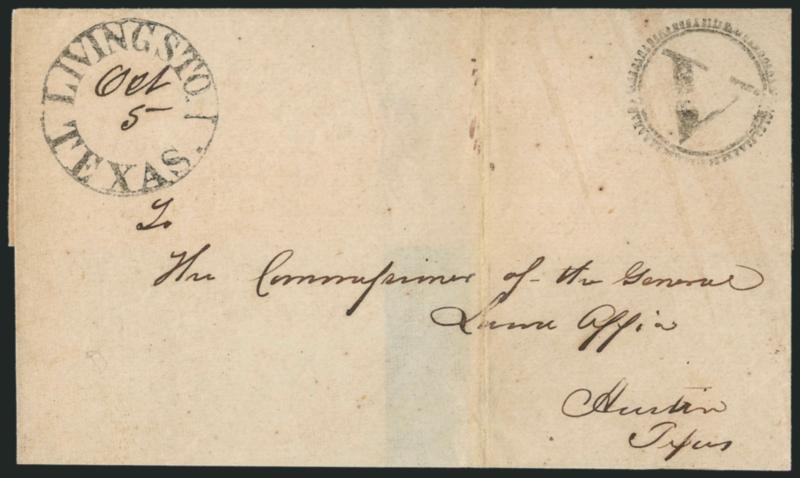 LIVINGSTON
Oct
5
TEXAS.
V
To
The Commissioner of the General
Land Office
Austin
Texas